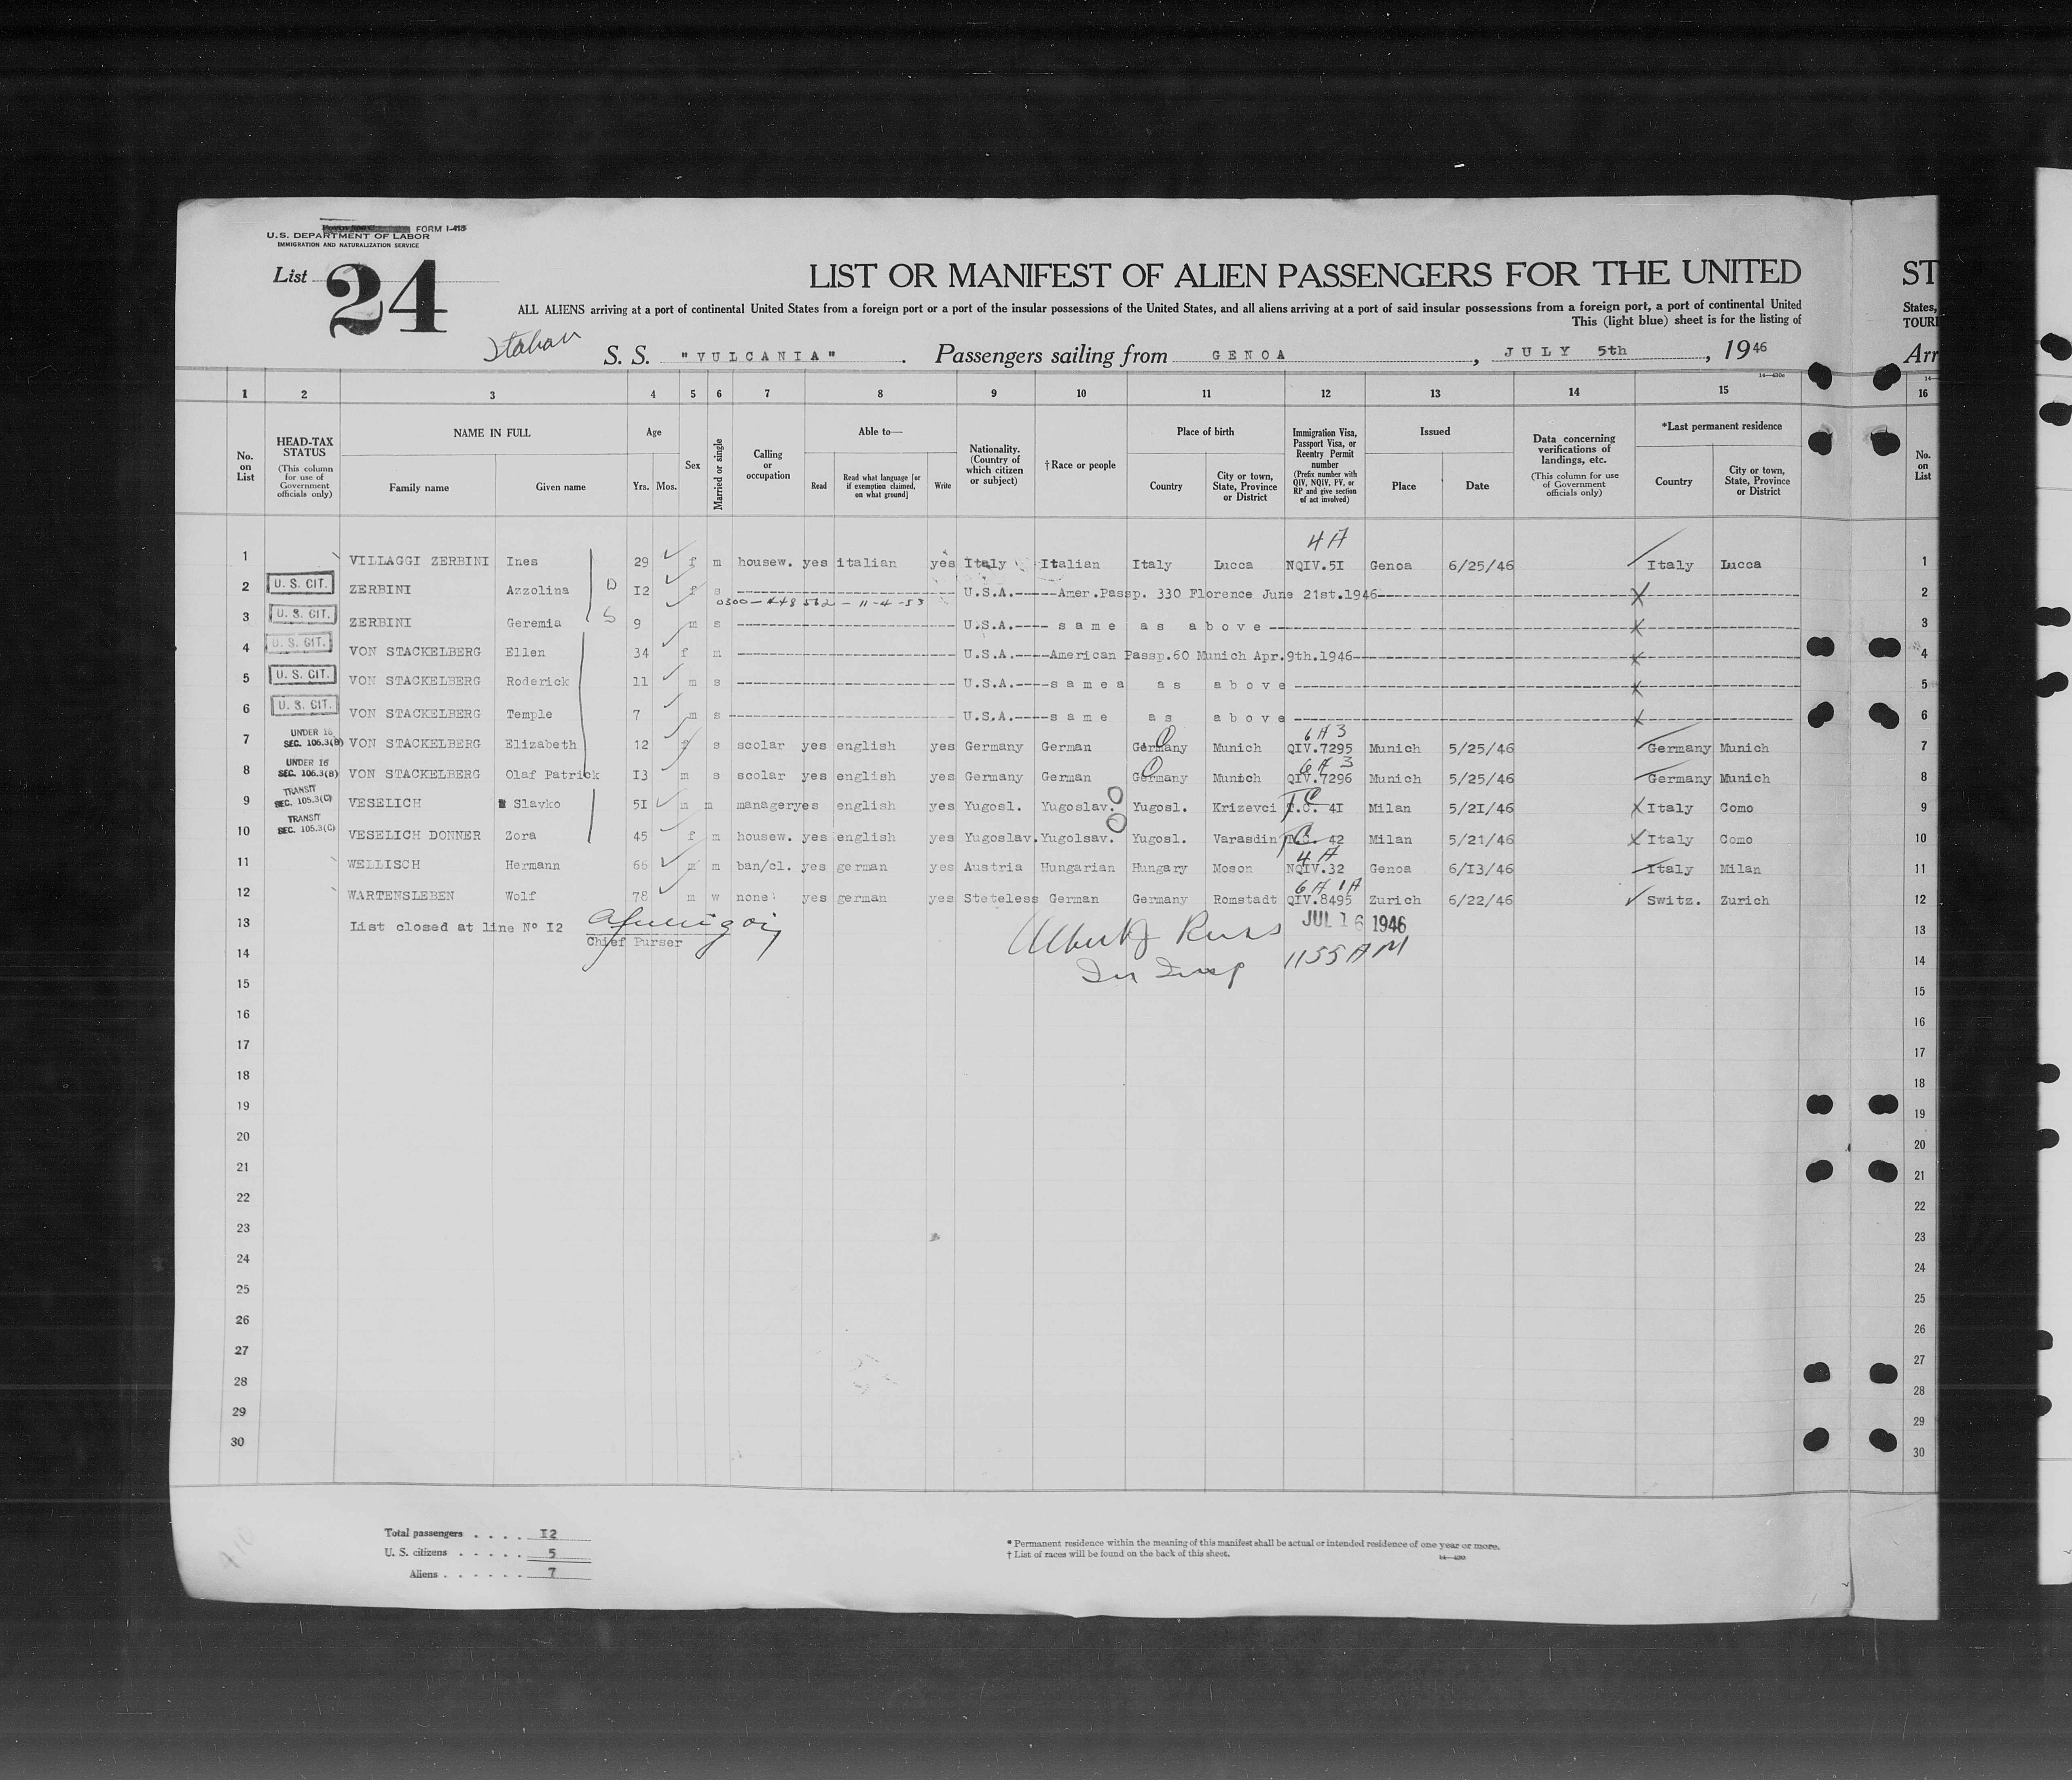 FORM I-415
U.S. DEPARTMENT OF LABOR
IMMIGRATION AND NATURALIZATION SERVICE
List 24
LIST OR MANIFEST OF ALIEN PASSENGERS FOR THE UNITED
ST
ALL ALIENS arriving at a port of continental United States from a foreign port or a port of the insular possessions of the United States, and all aliens arriving at a port of said insular possessions from a foreign port, a port of continental United
States,
This (light blue) sheet is for the listing of
TOURI
Italian S. S. "VULCANIA". Passengers sailing from GENOA, JULY 5th, 1946
Arr
14—430c
1 2 3 4 5 6 7 8 9 10 11 12 13 14 15 16
No. on List
HEAD-TAX STATUS (This column for use of Government officials only)
NAME IN FULL
Family name Given name
Age
Yrs. Mos.
Sex
Married or single
Calling or occupation
Able to—
Read Read what language [or if exemption claimed, on what ground] Write
Nationality. (Country of which citizen or subject)
†Race or people
Place of birth
Country City or town, State, Province or District
Immigration Visa, Passport Visa, or Reentry Permit number (Prefix number with QIV, NQIV, PV, or RP and give section of act involved)
Issued
Place Date
Data concerning verifications of landings, etc. (This column for use of Government officials only)
*Last permanent residence
Country City or town, State, Province or District
No. on List
4A
1 VILLAGGI ZERBINI Ines 29 f m housew. yes italian yes Italy Italian Italy Lucca NQIV.5I Genoa 6/25/46 Italy Lucca 1
2 U. S. CIT. ZERBINI Azzolina D I2 f s U.S.A.-----Amer.Passp. 330 Florence June 21st.1946 X 2
0300-448562-11-4-53
3 U. S. CIT. ZERBINI Geremia S 9 m s U.S.A.---- same as above X 3
4 U. S. CIT. VON STACKELBERG Ellen 34 f m U.S.A.-----American Passp.60 Munich Apr.9th.1946 X 4
5 U. S. CIT. VON STACKELBERG Roderick 11 m s U.S.A.-----samea as above X 5
6 U. S. CIT. VON STACKELBERG Temple 7 m s U.S.A.-----same as above X 6
UNDER 16 6A3
7 SEC. 105.3(B) VON STACKELBERG Elizabeth 12 f s scolar yes english yes Germany German Germany Munich QIV.7295 Munich 5/25/46 Germany Munich 7
UNDER 16 6A3
8 SEC. 105.3(B) VON STACKELBERG Olaf Patrick I3 m s scolar yes english yes Germany German Germany Munich QIV.7296 Munich 5/25/46 Germany Munich 8
TRANSIT
9 SEC. 105.3(C) VESELICH Slavko 5I m m manageryes english yes Yugosl. Yugoslav. Yugosl. Krizevci T.C. 4I Milan 5/2I/46 X Italy Como 9
TRANSIT
10 SEC. 105.3(C) VESELICH DONNER Zora 45 f m housew. yes english yes Yugoslav. Yugolsav. Yugosl. Varasdin T.C. 42 Milan 5/21/46 X Italy Como 10
4A
11 WELLISCH Hermann 66 m m ban/cl. yes german yes Austria Hungarian Hungary Moson NQIV.32 Genoa 6/I3/46 Italy Milan 11
6A 1A
12 WARTENSLEBEN Wolf 78 m w none yes german yes Steteless German Germany Romstadt QIV.8495 Zurich 6/22/46 Switz. Zurich 12
13 List closed at line N° I2 JUL 16 1946 13
Chief Purser
14 Imm Insp 1155 AM 14
15 15
16 16
17 17
18 18
19 19
20 20
21 21
22 22
23 23
24 24
25 25
26 26
27 27
28 28
29 29
30 30
Total passengers . . . . I2
U. S. citizens . . . . . 5
Aliens . . . . . . 7
* Permanent residence within the meaning of this manifest shall be actual or intended residence of one year or more.
† List of races will be found on the back of this sheet.
14—430